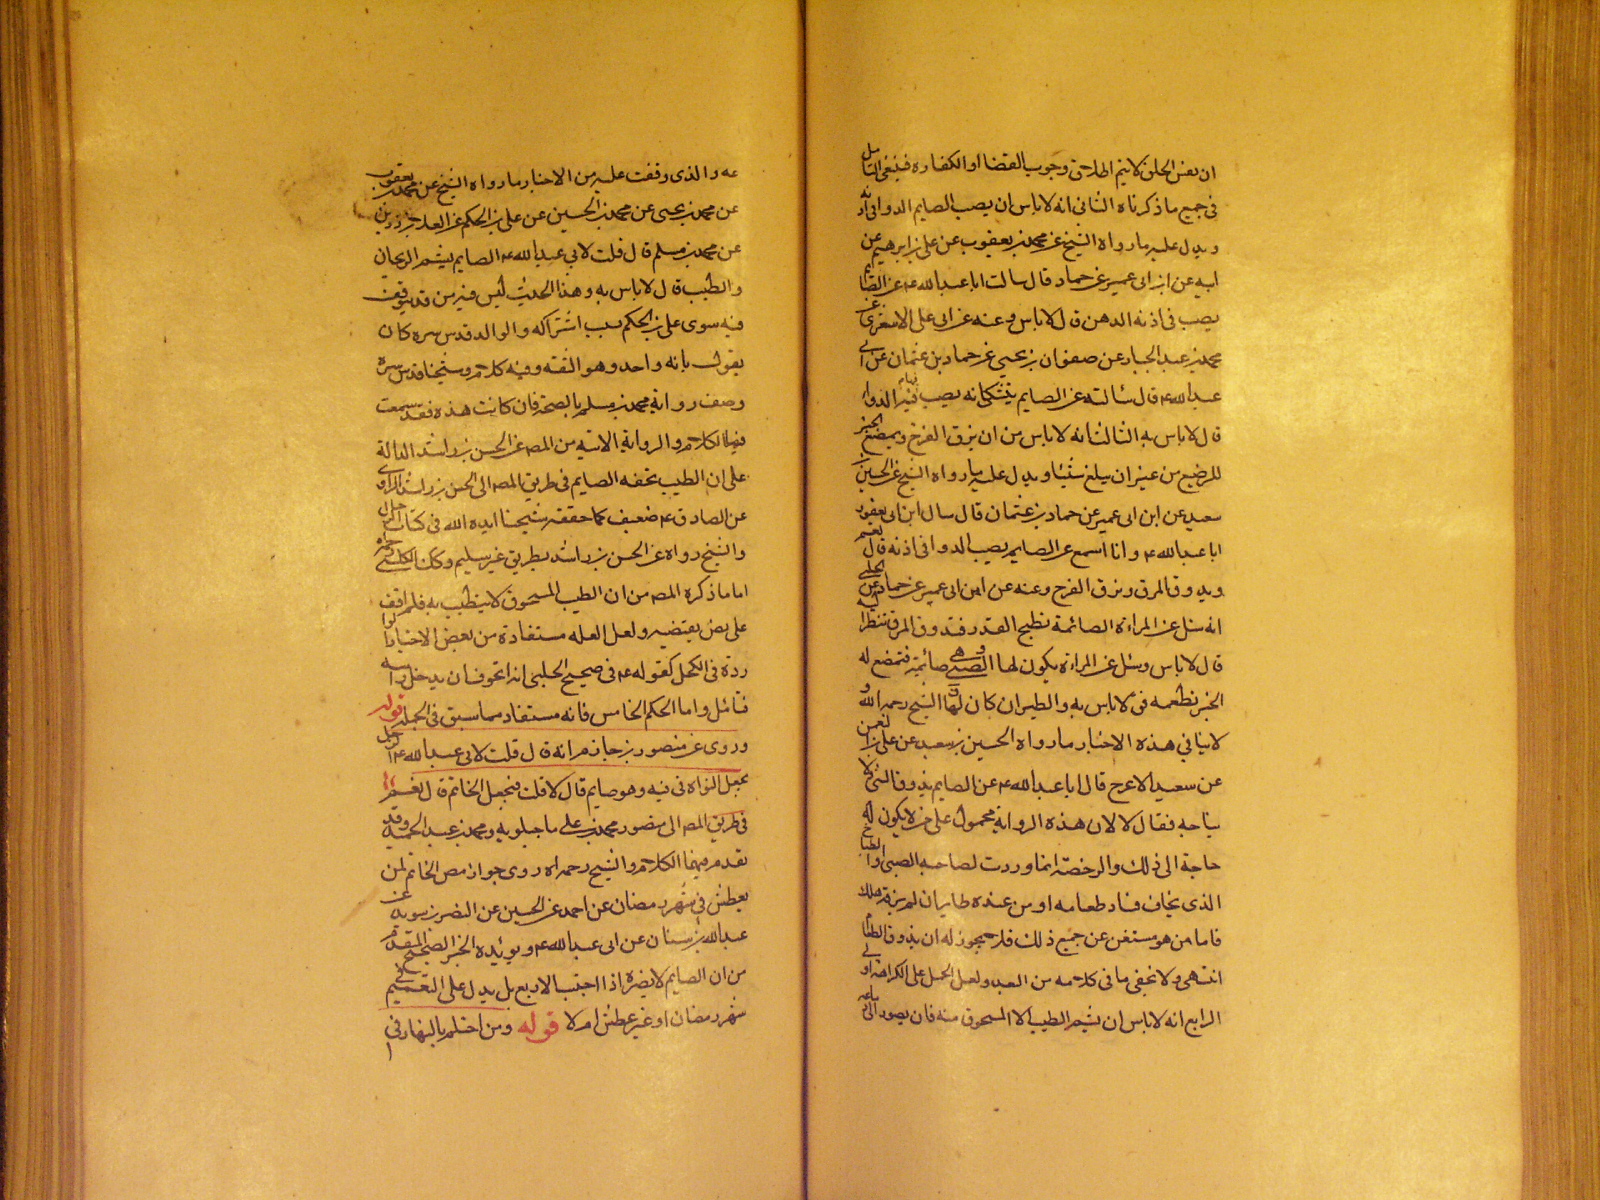 ان نفس الحلق لايتم الطلاحتى وجوب القضا او الكفاره فينبغى التامل
فى جميع ما ذكرناه الثانى انه لا باس ان يصب الصايم الدوا فى اذنه
ويدل عليه ما رواه الشيخ عن محمد بن يعقوب عن على بن ابرهيم عن
ابيه عن ابن ابى عمير عن حماد قال سالت ابا عبد الله ع عن الصايم
يصب فى اذنه الدهن قال لا باس وعنه عن ابى على الاشعرى عن
محمد بن عبد الجبار عن صفوان بن يحيى عن حماد بن عثمان عن ابى
عبد الله ع قال سئالته عن الصايم يشتكى اذنه يصب فيها الدوا
قال لا باس به الثالث انه لا باس من ان يزق الفرخ ويمضغ الخبز
للرضيع من غير ان يبلغ شيئا ويدل عليه ما رواه الشيخ عن الحسين بن
سعيد عن ابن ابى عمير عن حماد بن عثمان قال سال ابن ابى يعفور
ابا عبد الله ع وانا اسمع عن الصايم يصب الدوا فى اذنه قال نعم
ويذوق المرق ويزق الفرخ وعنه عن ابن ابى عمير عن حماد عن الحلبى
انه سئل عن المراة الصائمة تطبخ القدر فتذوق المرق تنظر اليه
قال لا باس وسئل عن المراة يكون لها الصبى وهى صائمة فتمضغ له
الخبز تطعمه قال لا باس به والطير ان كان لها قال الشيخ رحمه الله و
لا ينافى هذه الاخبار ما رواه الحسين بن سعيد عن على بن النعمن
عن سعيد الاعرج قال ابا عبد الله ع عن الصايم يذوق الشى ولا
يبلعه فقال لا لان هذه الرواية محمول على من لا يكون له
حاجة الى ذلك والرخصة انما وردت لصاحبة الصبى او الطباخ
الذى يخاف فساد طعامه او من عنده طاير ان لم يزقه هلك
فاما من هو مستغن عن جميع ذلك فلا يجوز له ان يذوق الطعام
انتهى ولا يخفى ما فى كلامه من البعد ولعل الحمل على الكراهة اولى
الرابع انه لا باس ان يشم الطيب الا المسحوق منه فانه يصعد الى دماغه
عه والذى وقفت عليه من الاخبار ما رواه الشيخ عن محمد بن يعقوب
عن محمد بن يحيى عن محمد بن الحسين عن على بن الحكم عن العلا بن رزين
عن محمد بن مسلم قال قلت لابى عبد الله ع الصايم يشم الريحان
والطيب قال لا باس به وهذا الحديث ليس فيه من قد يتوقف
فيه سوى على بن الحكم بسبب اشتراكه والوالد قدس سره كان
يقول بانه واحد وهو الثقة وفيه كلام وشيخنا قدس سره
وصف رواية محمد بن مسلم بالصحة فان كانت هذه فقد سمعت
فيها الكلام والرواية الاتيه من المص عن الحسن بن راشد الدالة
على ان الطيب تحفه الصايم فى طريق المص الى الحسن بن راشد الراوى
عن الصادق ع ضعيف كما حققه شيخنا ايده الله فى كتاب الرجال
والشيخ رواه عن الحسن بن راشد بطريق غير سليم وكذا الكلينى
اما ما ذكره المص من ان الطيب المسحوق لا يتطيب به فلم اقف
على نص يقتضيه ولعل العله مستفادة من بعض الاخبار الوا
ردة فى الكحل كقوله ع فى صحيح الحلبى انى اتخوف ان يدخل راسه
فتامل واما الحكم الخامس فانه مستفاد مما سبق فى الجملة قوله
وروى عن منصور بن حازم انه قال قلت لابى عبد الله ع الرجل
يجعل النواة فى فيه وهو صايم قال لا قلت فيجعل الخاتم قال نعم
فى طريق المص الى منصور محمد بن على ماجيلويه ومحمد بن عبد الحميد وقد
تقدم فيهما الكلام والشيخ رحمه الله روى جواز مص الخاتم لمن
يعطش فى شهر رمضان عن احمد عن الحسين عن النضر بن سويد عن
عبد الله بن سنان عن ابى عبد الله ع ويؤيده الخبر الصحيح المتقدم
من ان الصايم لا يضره اذا اجتنب الاربع بل يدل على التعميم فى
شهر رمضان او غيره عطش ام لا قوله ومن احتلم بالنهار فى